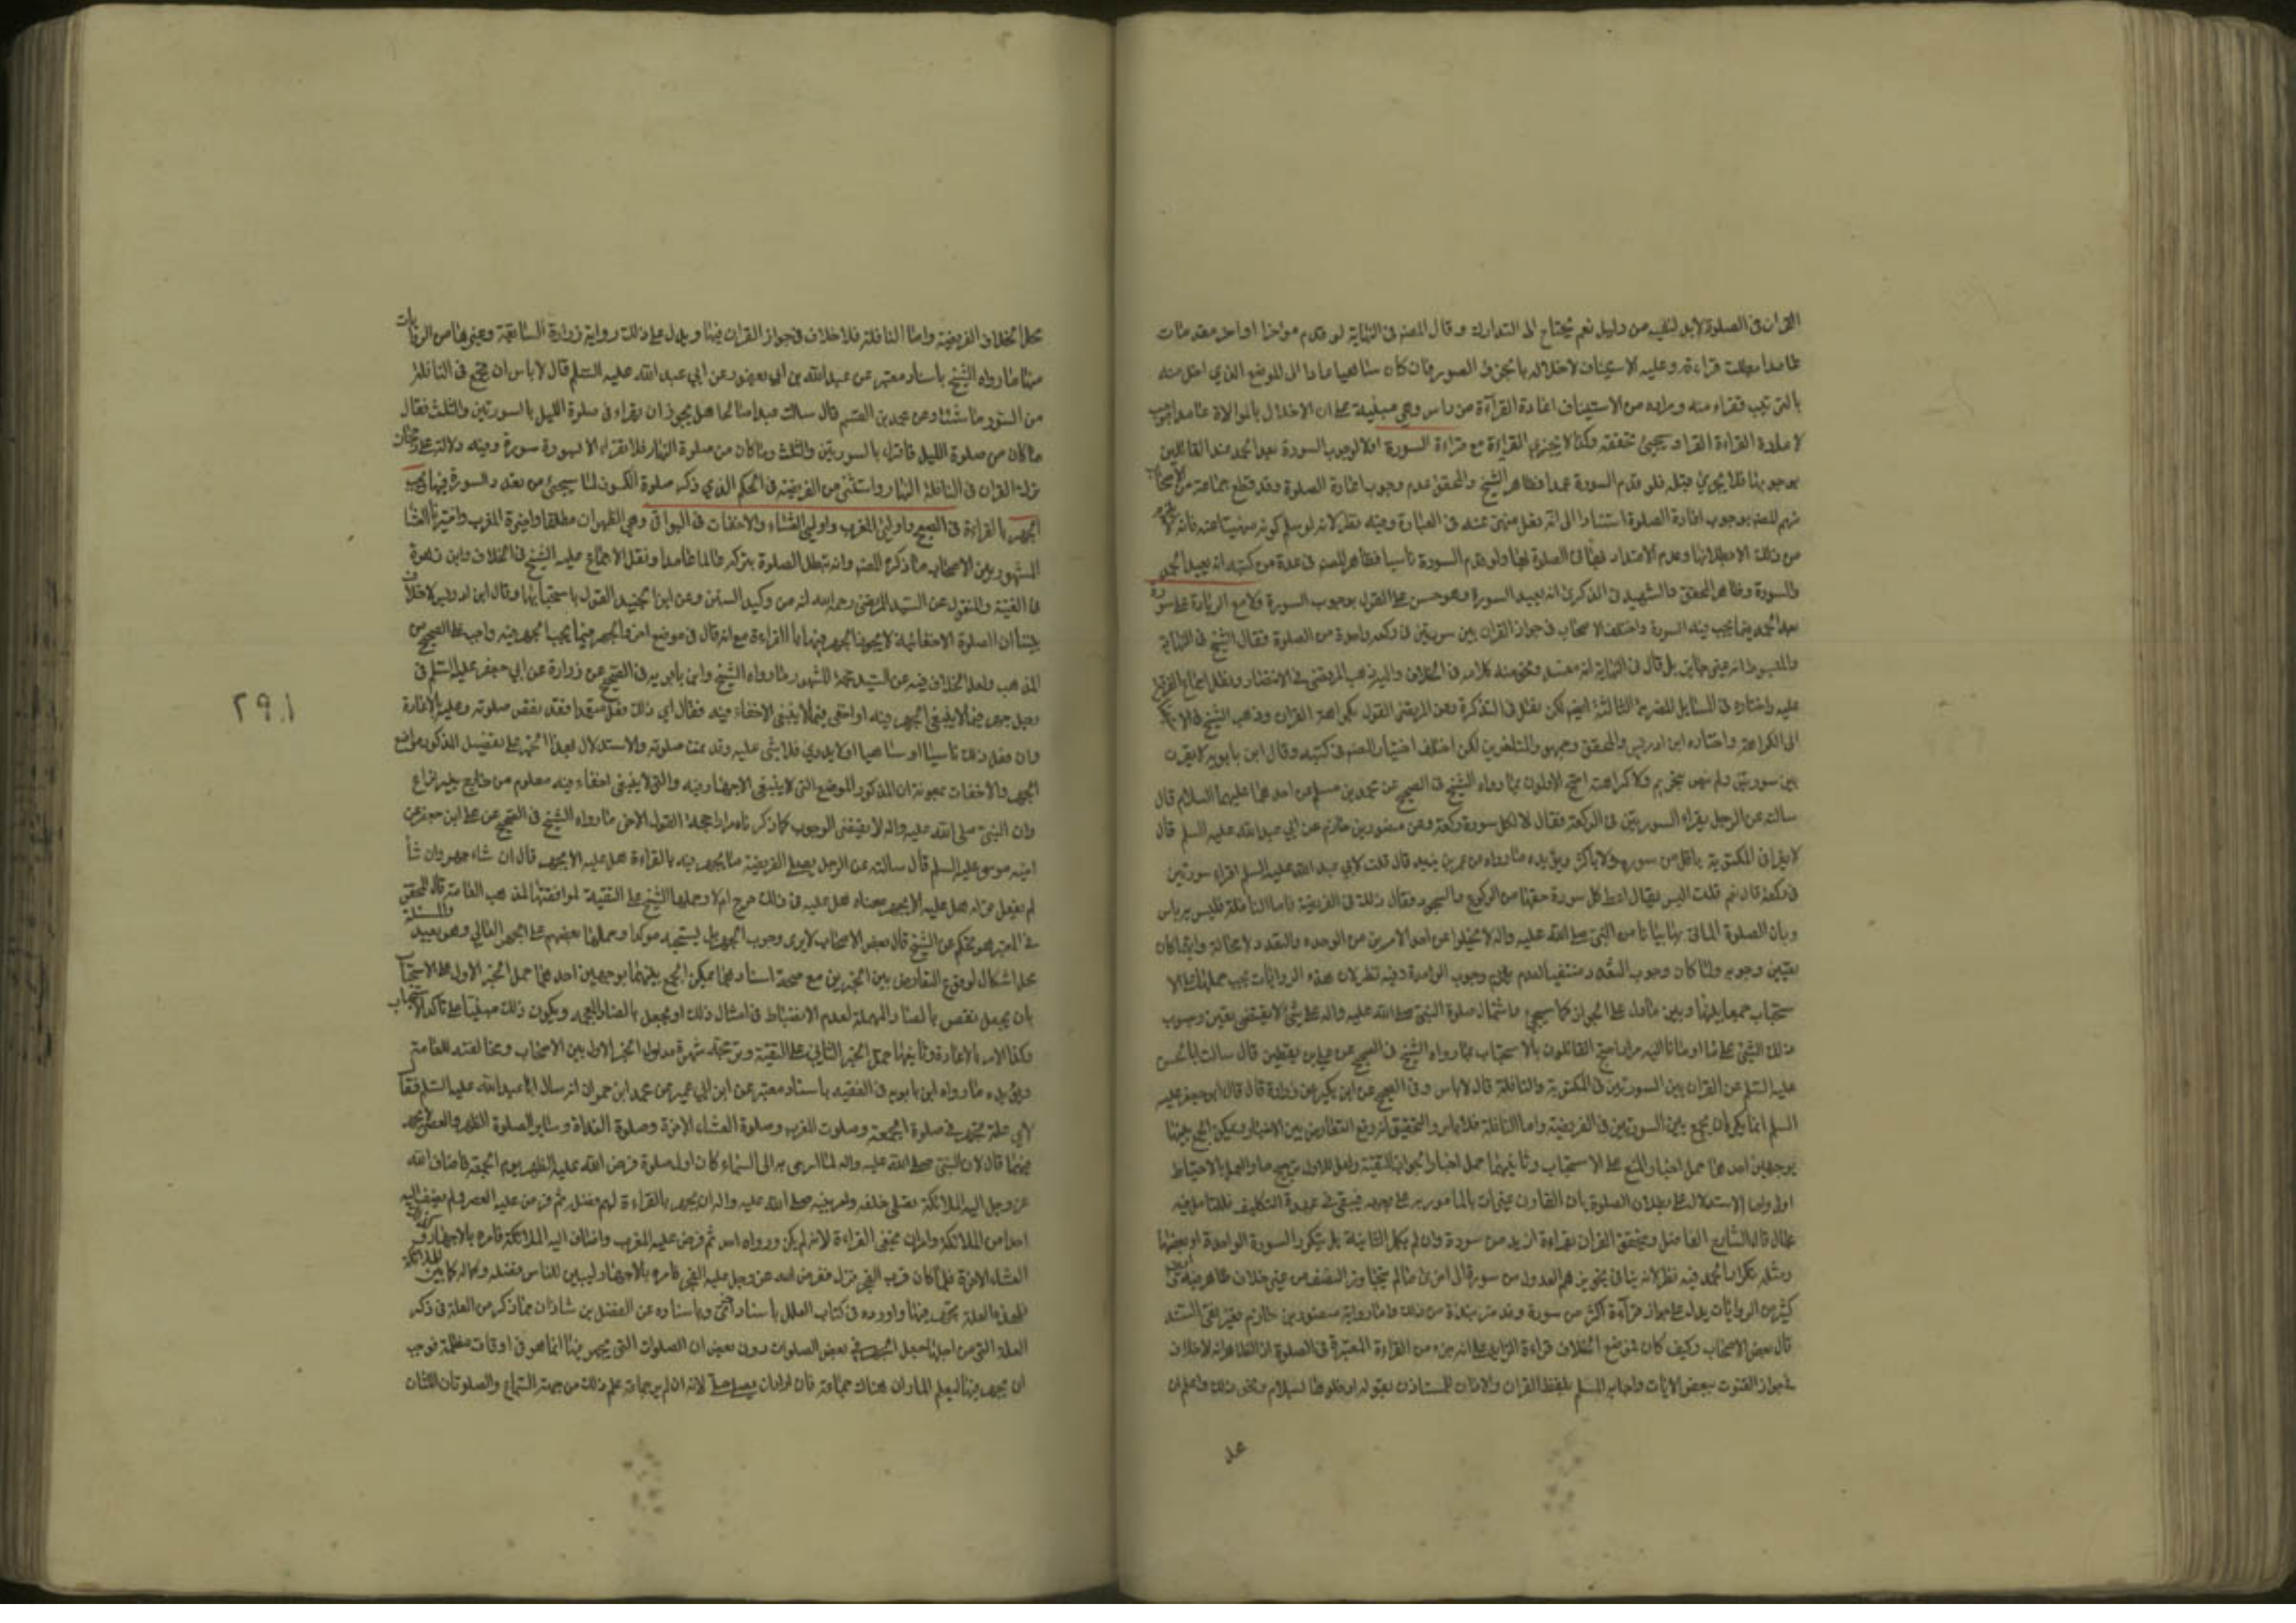 القرآن فى الصلوة لابد لنفيه من دليل نعم يحتاج الى التدارك وقال المصنف فى النهاية لو قدم مؤخرا او اخر مقدما
عامدا بطلت قراءته وعليه الاستيناف لاخلاله بالجزء الصورى فان كان ساهيا عاد الى الموضع الذي اخل منه
بالترتيب فقراء منه ومراده من الاستيناف اعادة القراءة من راس وهي مبنية على ان الاخلال بالموالاة عامدا
لاعادة القراءة وسيجئ تحقيقه وكذا لا يجزى القراءة مع قراءة السورة اولا لوجوب السورة بعد الحمد عند القائلين
بوجوبها فلا يجزئ قبله فلو قدم السورة عمدا فظاهر الشيخ والمحقق عدم وجوب اعادة الصلوة وقد قطع جماعة من الاصحاب
منهم المصنف بوجوب اعادة الصلوة استنادا الى انه فعل منهى عنه فى العبادة وفيه نظر لانه لو سلم كونه منهيا عنه فانه
من ذلك الا بطلانها وعدم الاعتداد بها فى الصلوة ولو قدم السورة ناسيا فظاهر المصنف فى عدة من كتبه انه يعيد الحمد
والسورة وظاهر المحقق والشهيد فى الذكرى انه يعيد السورة وهو حسن على القول بوجوب السورة ولا مع الزيادة على سورة
بعد الحمد فيما يجب فيه السورة واختلف الاصحاب فى جواز القران بين سورتين فى ركعة واحدة من الصلوة فقال الشيخ فى النهاية
والمبسوط انه غير جايز بل قال فى النهاية انه مفسد ونحو منه كلامه فى الخلاف واليه ذهب المرتضى فى الانتصار ونقل اجماع الفرقة
عليه واختاره فى المسايل المصرية الثالثة ايضا لكن نقل فى التذكرة وعن المرتضى القول بكراهة القران وذهب الشيخ فى
الى الكراهة واختاره ابن ادريس والمحقق وجمهور المتاخرين لكن اختلف اختيار المصنف فى كتبه وقال ابن بابويه لا يقرن
بين سورتين ولم ينص بتحريم ولا كراهة احتج الاولون بما رواه الشيخ فى الصحيح عن محمد بن مسلم عن احدهما عليهما السلام قال
سالته عن الرجل يقراء السورتين فى الركعة فقال لا لكل سورة ركعة وعن منصور بن حازم عن ابي عبد الله عليه السلم قال
لا يقرا فى المكتوبة باقل من سورة ولا باكثر ويؤيده ما رواه عن عمر بن يزيد قال قلت لابي عبد الله عليه السلم اقراء سورتين
فى ركعة قال نعم قلت اليس يقال اعط كل سورة حقها من الركوع والسجود فقال ذلك فى الفريضة فاما النافلة فليس به باس
وبان الصلوة الماتى بها بيانا من النبى صلى الله عليه واله لا يخلوا عن احد الامرين من الوحدة والتعدد لا محالة وايهما كان
تعين وجوبه ولما كان وجوب التعدد منتفيا لعدم يلزم وجوب الواحدة وفيه نظر لان هذه الروايات يجب حملها على الا
ستحباب جمعا بينها وبين ما دل على الجواز كما سيجئ واشتمال صلوة النبى صلى الله عليه واله على شئ لا يقتضى تعين وجوب
ذلك الشيئ على ما اومانا اليه مرارا احتج القائلون بالاستحباب بما رواه الشيخ فى الصحيح عن على بن يقطين قال سالت ابا الحسن
عليه السلم عن القران بين السورتين فى المكتوبة والنافلة قال لا باس وفى الصحيح عن ابن بكير عن زرارة قال قال ابو جعفر عليه
السلم انما يكره ان يجمع بين السورتين فى الفريضة واما النافلة فلا باس والتحقيق انه وقع التعارض بين الاخبار ويمكن الجمع بينها
بوجهين احدهما حمل اخبار المنع على الاستحباب وثانيهما حمل اخبار الجواز على التقية ولعل للاول ترجيح ما والعمل بالاحتياط
اولى واما الاستدلال على بطلان الصلوة بان القارن غير ات بالمامور به على وجهه فيبقى فى عهدة التكليف فللتامل فيه
مجال قال الشارح الفاضل ويتحقق القران بقراءة ازيد من سورة وان لم يكمل الثانية بل بتكرر السورة الواحدة او بعضها
ومثله تكرار الحمد فيه نظر
كثير من الروايات يدل على جواز قراءة اكثر من سورة وقد مر نبذة من ذلك واما رواية منصور بن حازم فغير نقى السند
قال بعض الاصحاب وكيف كان فموضع الخلاف قراءة الزايد على انه جزء من القراءة المعتبرة فى الصلوة اذ الظاهر انه لا خلاف
فى جواز القنوت ببعض الايات واجابة المسلم بلفظ القران والاذن للمستاذن بقوله ادخلوها بسلام ونحو ذلك واعلم ان
عد
محل الخلاف الفريضة واما النافلة فلا خلاف فى جواز القران فيها ويدل على ذلك رواية زرارة السابقة وغيرها من الروايات
منها ما رواه الشيخ باسناد معتبر عن عبد الله بن ابي يعفور عن ابي عبد الله عليه السلم قال لا باس ان تجمع فى النافلة
من السور ما شئت وعن محمد بن القسم قال سالت عبدا صالحا هل يجوز ان يقراء فى صلوة الليل بالسورتين والثلث فقال
ما كان من صلوة الليل فاقراء بالسورتين والثلث وما كان من صلوة النهار فلا تقراء الا بسورة سورة وفيه دلالة على رجحان
ترك القران فى النافلة النهار واستثنى من الفريضة فى الحكم الذي ذكر صلوة الكسوف لما سيجئ من تعدد السورة فيها ويجب
الجهر بالقراءة فى الصبح واوليى المغرب واوليى العشاء والاخفات فى البواقى وهي الظهران مطلقا واخيرة المغرب واخيرتا العشا
المشهور بين الاصحاب ما ذكره المصنف وانه تبطل الصلوة بتركه عالما عامدا ونقل الاجماع عليه الشيخ فى الخلاف وابن زهرة
فى الغنية والمنقول عن السيد المرتضى رحمه الله انه من وكيد السنن وعن ابن الجنيد القول باستحبابها وقال ابن ادريس لا خلاف
بيننا ان الصلوة الاخفاتية لا يجوز الجهر فيها بالقراءة مع انه قال فى موضع اخر والجهر فيما يجب الجهر فيه واجب على الصحيح من
المذهب ولعل الخلاف فيه عن السيد حجة المشهور ما رواه الشيخ وابن بابويه فى الصحيح عن زرارة عن ابي جعفر عليه السلم فى
رجل جهر فيما لا ينبغى الجهر فيه او اخفى فيما لا ينبغى الاخفاء فيه فقال اي ذلك فعل متعمدا فقد نقض صلوته وعليه الاعادة
وان فعل ذلك ناسيا او ساهيا او لا يدري فلا شئ عليه وقد تمت صلوته والاستدلال بهذا الخبر على تفصيل المذكور مواضع
الجهر والاخفات بمعونة ان المذكور الموضع التى لا ينبغى الاجهار فيه والتى لا ينبغى اخفاء فيه معلوم من خارج بلا نزاع
وان النبى صلى الله عليه واله لا يقتضى الوجوب كما ذكرناه مرارا حجة القول الاخر ما رواه الشيخ فى الصحيح عن على ابن جعفر عن
اخيه موسى عليه السلم قال سالته عن الرجل يصلى الفريضة ما يجهر فيه بالقراءة هل عليه الا يجهر قال ان شاء جهر وان شاء
لم يفعل قوله هل عليه الا يجهر معناه هل عليه فى ذلك حرج ام لا وحملها الشيخ على التقية لموافقتها لمذهب العامة قال المحقق
فى المعتبر هو تحكم من الشيخ فان بعض الاصحاب لا يرى وجوب الجهر بل يستحبه مؤكدا وحملها بعضهم على الجهر العالي وهو بعيد والمسئلة
محل اشكال لوقوع التعارض بين الخبرين مع صحة اسنادهما ويمكن الجمع بينهما بوجهين احدهما حمل الخبر الاول على الاستحباب
بان يجعل نقص بالصاد المهملة لعدم الانضباط فى امثال ذلك او يجعل بالضاد المعجمة ويكون ذلك مبنيا على تاكد الاستحباب
وكذا الامر بالاعادة وثانيهما حمل الخبر الثاني على التقية ويرجحه شهرة مدلول الخبر الاول بين الاصحاب ومخالفته للعامة
ويؤيده ما رواه ابن بابويه فى الفقيه باسناد معتبر عن ابن ابي عمير عن محمد ابن حمران انه سال ابا عبد الله عليه السلم فقال
لاي علة يجهر فى صلوة الجمعة وصلوة المغرب وصلوة العشاء الاخرة وصلوة الغداة وساير الصلوة الظهر والعصر لا يجهر
فيهما قال لان النبى صلى الله عليه واله لما اسرى به الى السماء كان اول صلوة فرض الله عليه الظهر يوم الجمعة فاضاف الله
عز وجل اليه الملائكة تصلى خلفه وامر نبيه صلى الله عليه واله ان يجهر بالقراءة ليبين لهم فضله ثم فرض عليه العصر ولم يضف اليه
احدا من الملائكة وامره ان يخفى القراءة لانه لم يكن وراه احد ثم فرض عليه المغرب واضاف اليه الملائكة فامره بالاجهار وكذلك
العشاء الاخرة فلما كان قرب الفجر نزل ففرض الله عز وجل عليه الفجر فامره بالاجهار ليبين للناس فضله كما بين للملائكة
فلهذه العلة يجهر فيها واورده فى كتاب العلل باسناد اخر وباسناده عن الفضل بن شاذان مما ذكر من العلة فى ذكر
العلة التى من اجلها جعل الجهر فى بعض الصلوات دون بعض ان الصلوات التى يجهر فيها انما هو فى اوقات مظلمة فوجب
ان يجهر فيها ليعلم المار ان هناك جماعة فان اراد ان يصلى صلى لانه ان لم ير جماعة علم ذلك من جهة السماع والصلوتان اللتان
٢٩١